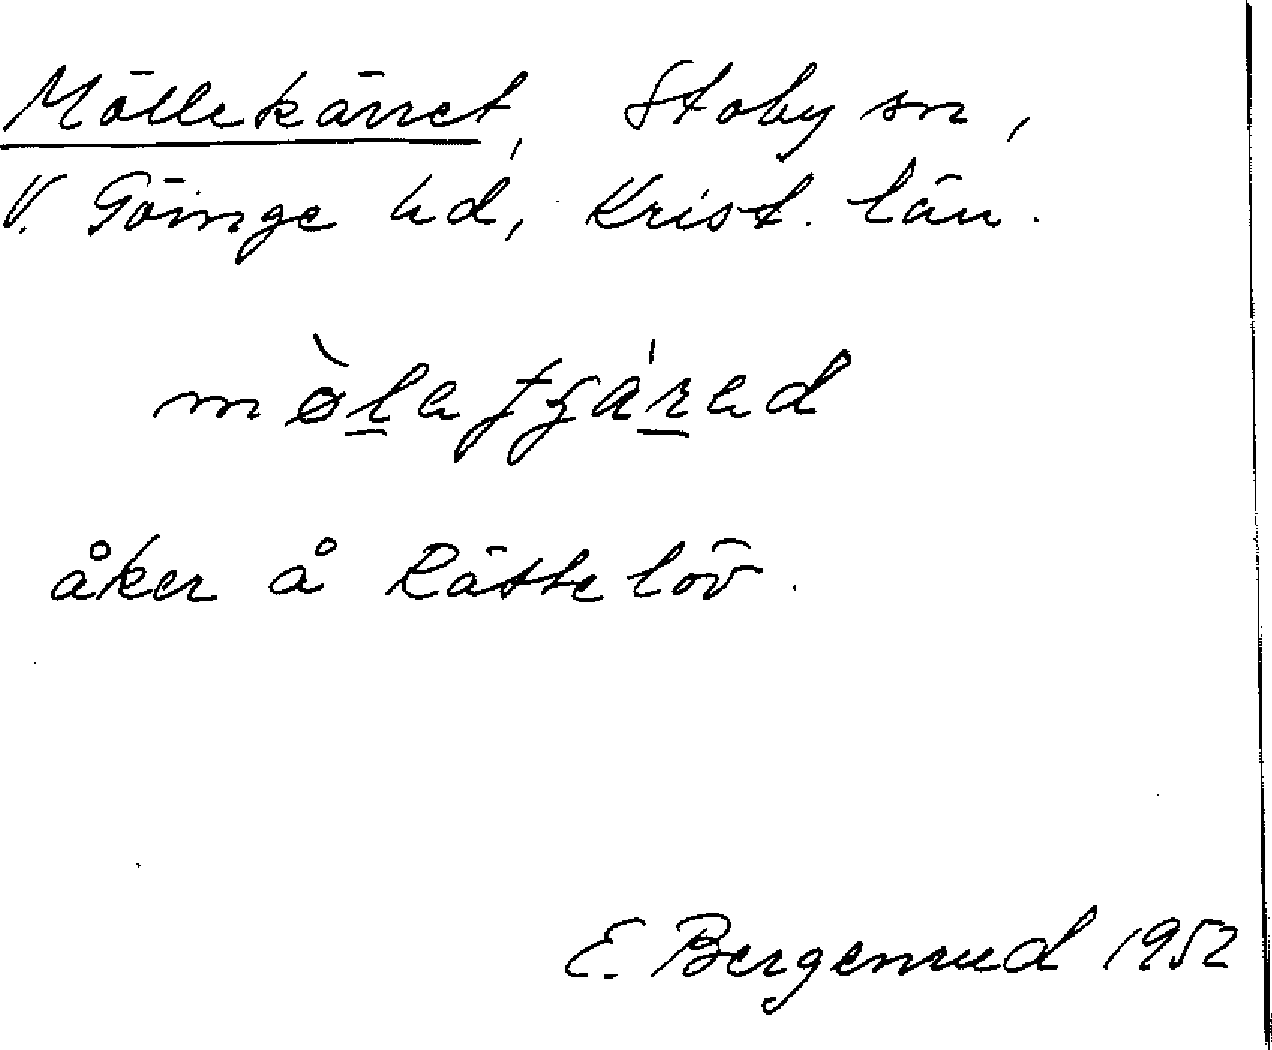 Möllekärret, Stoby sn,
V. Göinge hd, Krist. län.
mø̀l̲a tʃár̲ad
åker å Rättelöv.
E. Bergenrud 1952